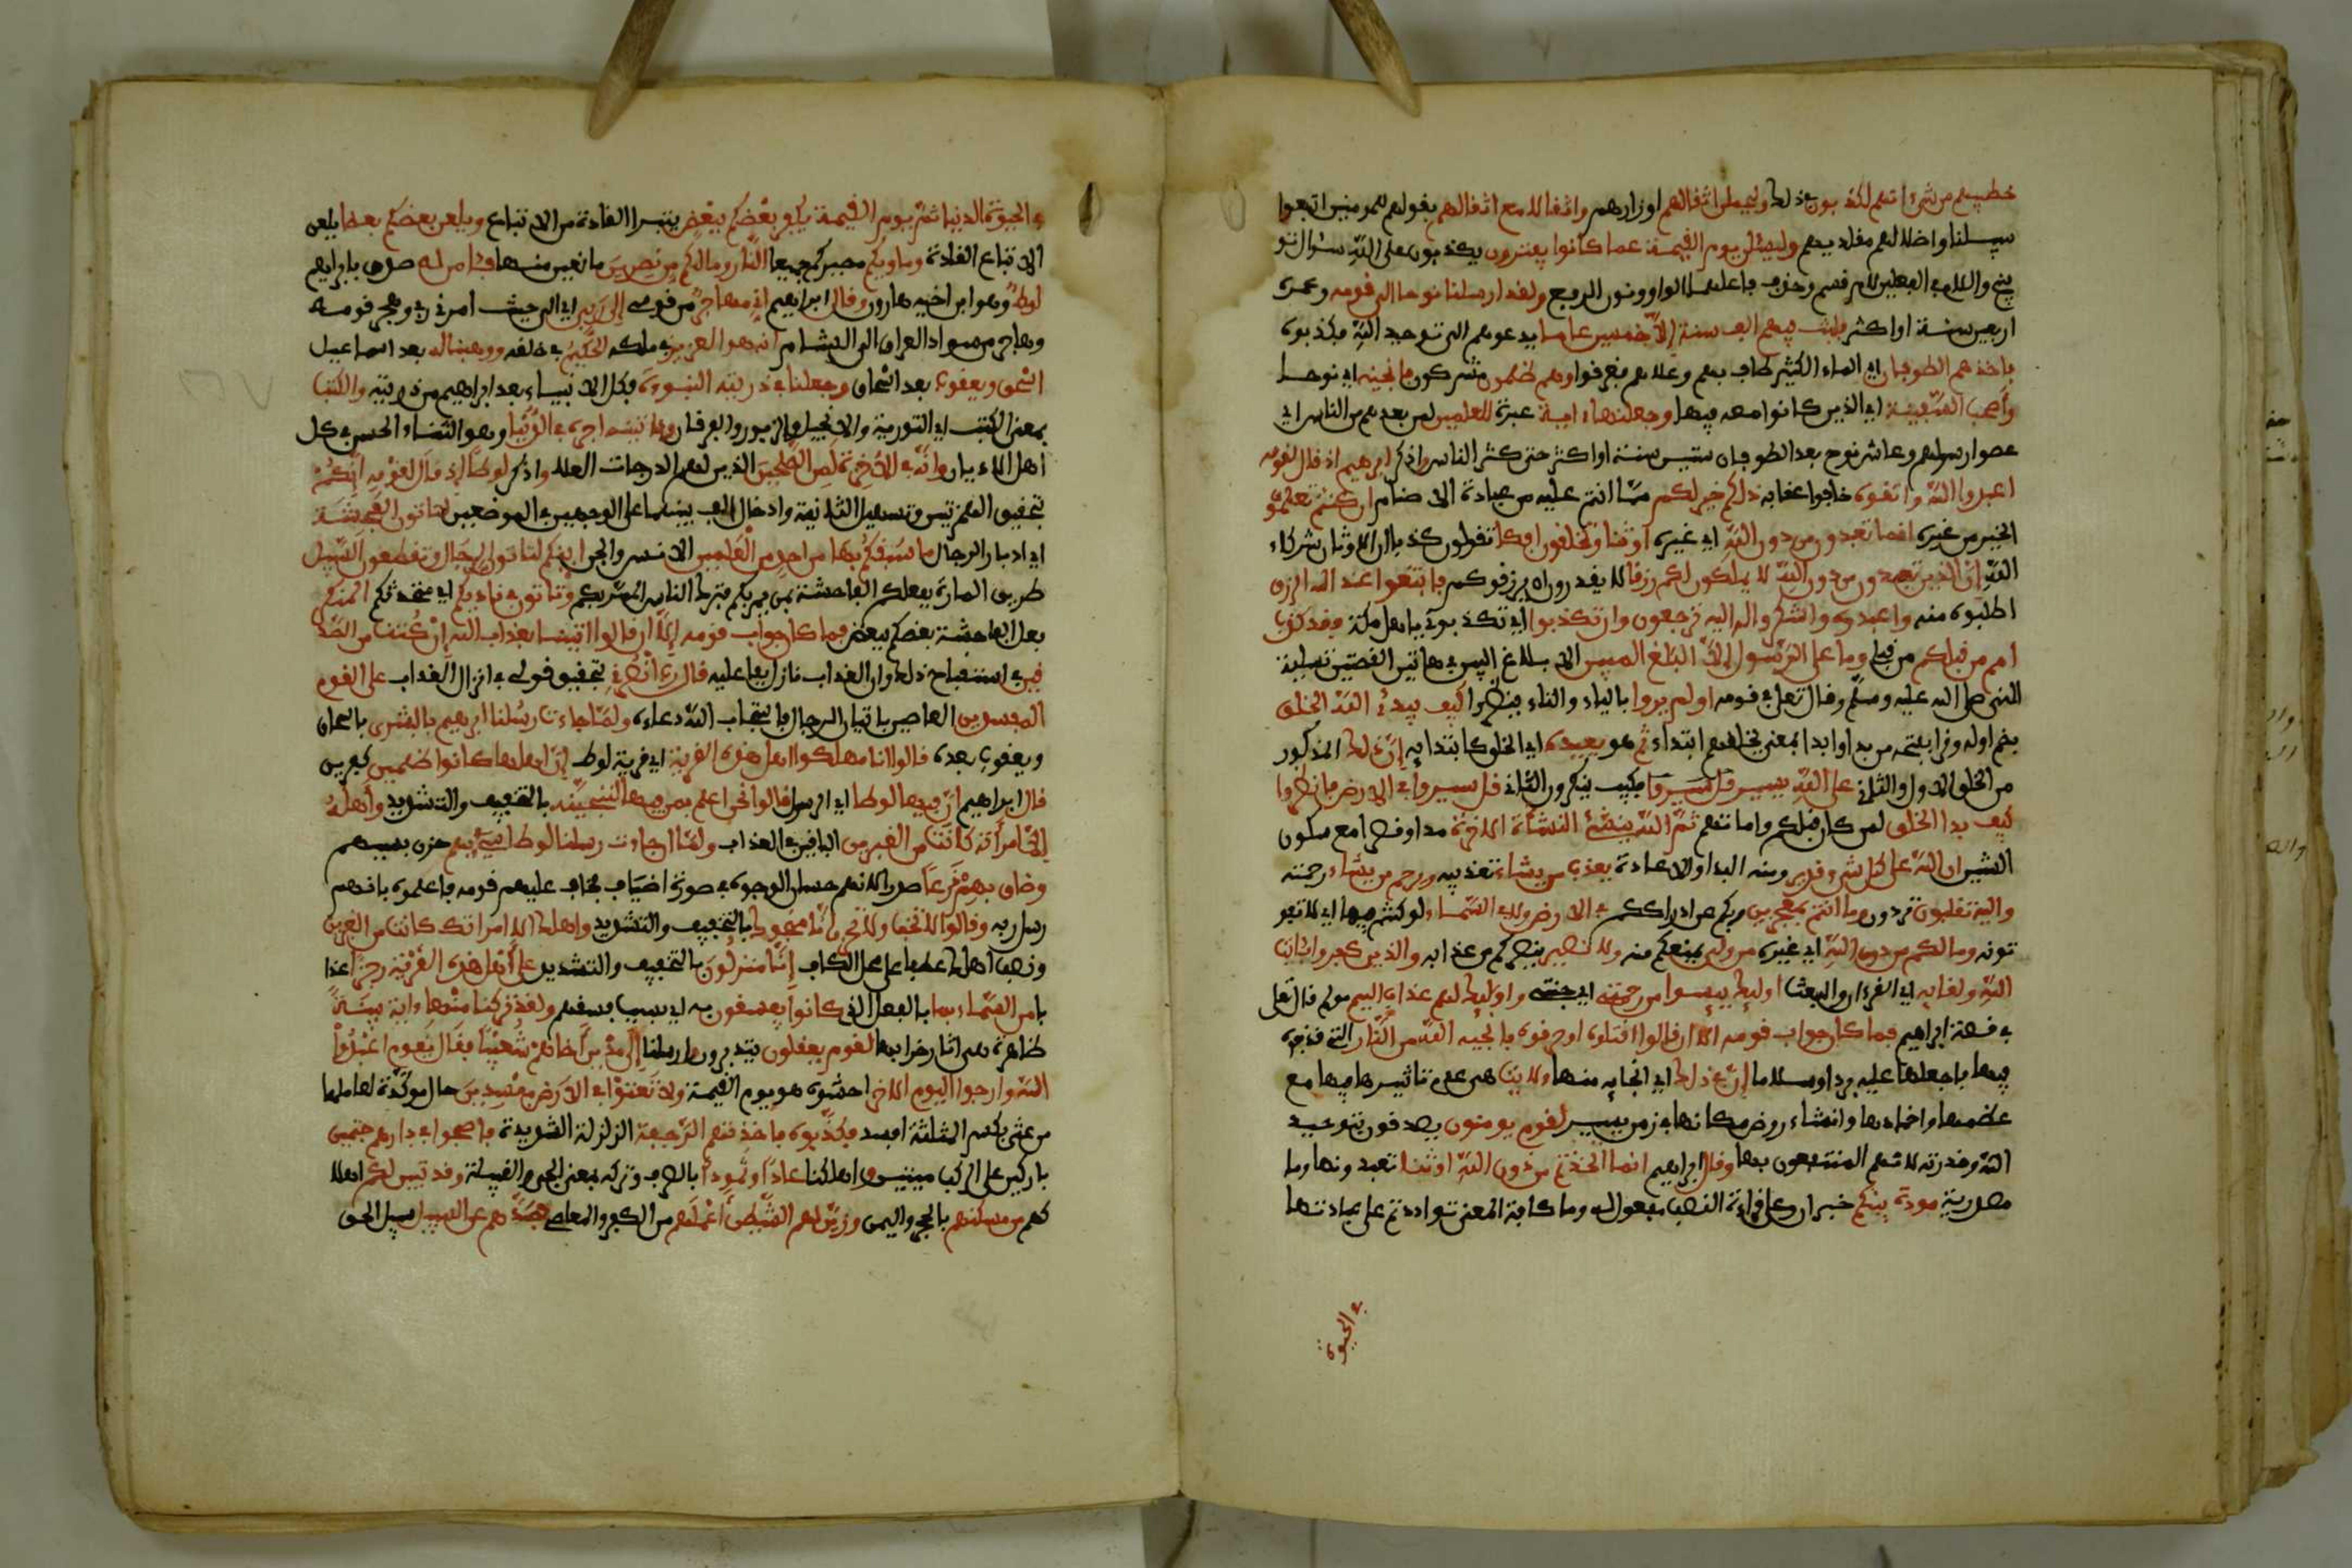 خطيهم من شيء انهم لكذبون في ذلك وليحملن اثقالهم اوزارهم واثقالا مع اثقالهم بقولهم للمومنين اتبعوا
سبيلنا واضلالهم مقلديهم وليسئلن يوم القيمة عما كانوا يفترون يكذبون على الله سؤال تو
بيخ واللام في الفعلين لام قسم وحذف فاعلهما الواو ونون الرفع ولقد ارسلنا نوحا الى قومه وعمره
اربعين سنة او اكثر فلبث فيهم الف سنة الا خمسين عاما يدعوهم الى توحيد الله فكذبوه
فاخذهم الطوفان اي الماء الكثير طاف بهم وعلاهم فغرقوا وهم ظلمون مشركون فانجينه اي نوحا
واصحب السفينة اي الذين كانوا معه فيها وجعلنها ءاية عبرة للعلمين لمن بعدهم من الناس اي
عصوا رسولهم وعاش نوح بعد الطوفان ستين سنة او اكثر حتى كثر الناس واذكر ابرهيم اذ قال لقومه
اعبدوا الله واتقوه خافوا عقابه ذلكم خير لكم مما انتم عليه من عبادة الاصنام ان كنتم تعلمون
الخير من غيره انما تعبدون من دون الله اي غيره اوثنا وتخلقون افكا تقولون كذبا ان الاوثان شركاء
الله ان الذين تعبدون من دون الله لا يملكون لكم رزقا لا يقدرون ان يرزقوكم فابتغوا عند الله الرزق
اطلبوه منه واعبدوه واشكروا له اليه ترجعون وان تكذبوا اي تكذبوني يا اهل مكة فقد كذب
امم من قبلكم من قبلي وما على الرسول الا البلغ المبين الا بلاغ البين في هاتين القصتين تسلية
للنبي صلى الله عليه وسلم وقال تعلى في قومه اولم يروا بالياء والتاء ينظروا كيف يبدئ الله الخلق
بضم اوله وقرا بفتحه من بدا وابدا بمعنى يخلقهم ابتداء ثم هو يعيده اي الخلق كما بتدا به ان ذلك المذكور
من الخلق الاول والثاني على الله يسير فكيف ينكرون الثاني قل سيروا في الارض فانظروا
كيف بدا الخلق لمن كان قبلكم واماتهم ثم الله ينشئ النشأة الاخرة مدا وقصرا مع سكون
الشين ان الله على كل شيء قدير ومنه البدا والاعادة يعذب من يشاء تعذيبه ويرحم من يشاء رحمته
واليه تقلبون تردون وما انتم بمعجزين ربكم عن ادراككم في الارض ولا في السماء لو كنتم فيها اي لا تفو
تونه وما لكم من دون الله اي غيره من ولي يمنعكم منه ولا نصير ينصركم من عذابه والذين كفروا بئايت
الله ولقائه اي القرءان والبعث اوليك ييسوا من رحمتي اي جنتي واوليك لهم عذاب اليم مولم قال تعلى
في قصة ابراهيم فما كان جواب قومه الا ان قالوا اقتلوه او حرقوه فانجيه الله من النار التي قذفوه
فيها بان جعلها عليه بردا وسلاما ان في ذلك اي انجايه منها لايت هي عدم تاثيرها فيه مع
عظمها واخمادها وانشاء روض مكانها في زمن يسير لقوم يومنون يصدقون بتوحيد
الله وقدرته لانهم المنتفعون بها وقال ابراهيم انما اتخذتم من دون الله اوثنا تعبدونها وما
مصدرية مودة بينكم خبر ان وعلى قراءة النصب مفعول له وما كافة المعنى تواددتم على عبادتها
في الحيوة
في الحيوة الدنيا ثم يوم القيمة يكفر بعضكم ببعض يتبرا القادة من الاتباع ويلعن بعضكم بعضا يلعن
الاتباع القادة وماويكم مصيركم جميعا النار وما لكم من نصرين مانعين منها فئامن له صدق بابراهيم
لوط وهو ابن اخيه هارون وقال ابراهيم اني مهاجر من قومي الى ربي اي الى حيث امرني ربي وهجر قومه
وهاجر من سواد العراق الى الشام انه هو العزيز في ملكه الحكيم في خلقه ووهبنا له بعد اسماعيل
اسحق ويعقوب بعد اسحاق وجعلنا في ذريته النبوة فكل الانبياء بعد ابراهيم من ذريته والكتب
بمعنى الكتب اي التورية والانجيل والزبور والفرقان وءاتينه اجره في الدنيا وهو الثناء الحسن في كل
اهل الاديان وانه في الاخرة لمن الصلحين الذين لهم الدرجات العلا واذكر لوطا اذ قال لقومه ائنكم
بتحقيق الهمزتين وتسهيل الثانية وادخال الف بينهما على الوجهين في الموضعين لتاتون الفحشة
اي ادبار الرجال ما سبقكم بها من احد من العلمين الانس والجن اينكم لتاتون الرجال وتقطعون السبيل
طريق المارة بفعلكم الفاحشة بمن يمر بكم فترك الناس الممر بكم وتاتون في ناديكم اي متحدثكم المنكر
فعل الفاحشة بعضكم ببعض فما كان جواب قومه الا ان قالوا ايتنا بعذاب الله ان كنت من الصد
قين في استقباح ذلك وان العذاب نازل بفاعليه قال رب انصرني بتحقيق قولي في انزال العذاب على القوم
المفسدين العاصين باتيان الرجال فاستجاب الله دعاءه ولما جاءت رسلنا ابرهيم بالبشرى باسحاق
ويعقوب بعده قالوا انا مهلكوا اهل هذه القرية اي قرية لوط ان اهلها كانوا ظلمين كفرين
قال ابراهيم ان فيها لوطا اي الرسل قالوا نحن اعلم بمن فيها لننجينه بالتخفيف والتشديد واهله
الا امراته كانت من الغبرين الباقين في العذاب ولما ان جاءت رسلنا لوطا سيء بهم حزن بسببهم
وضاق بهم ذرعا صدرا لانهم حسان الوجوه في صورة اضياف فخاف عليهم قومه فاعلموه بانهم
رسل ربه وقالوا لا تخف ولا تحزن انا منجوك بالتخفيف والتشديد واهلك الا امراتك كانت من الغبرين
ونصب اهلك عطفا على محل الكاف انا منزلون بالتخفيف والتشديد على اهل هذه القرية رجزا عذا
با من السماء بما بالفعل الذي كانوا يفسقون به اي بسبب فسقهم ولقد تركنا منها ءاية بينة
ظاهرة هي اثار خرابها لقوم يعقلون يتدبرون وارسلنا الى مدين اخاهم شعيبا فقال يقوم اعبدوا
الله وارجوا اليوم الاخر اخشوه هو يوم القيمة ولا تعثوا في الارض مفسدين حال موكدة لعاملها
من عثى بكسر المثلثة افسد فكذبوه فاخذتهم الرجفة الزلزلة الشديدة فاصبحوا في دارهم جثمين
باركين على الركب ميتين واهلكنا عادا وثمودا بالصرف وتركه بمعنى الحي والقبيلة وقد تبين لكم اهلا
كهم من مسكنهم بالحجر واليمن وزين لهم الشيطن اعملهم من الكفر والمعاصي فصدهم عن السبيل سبيل الحق